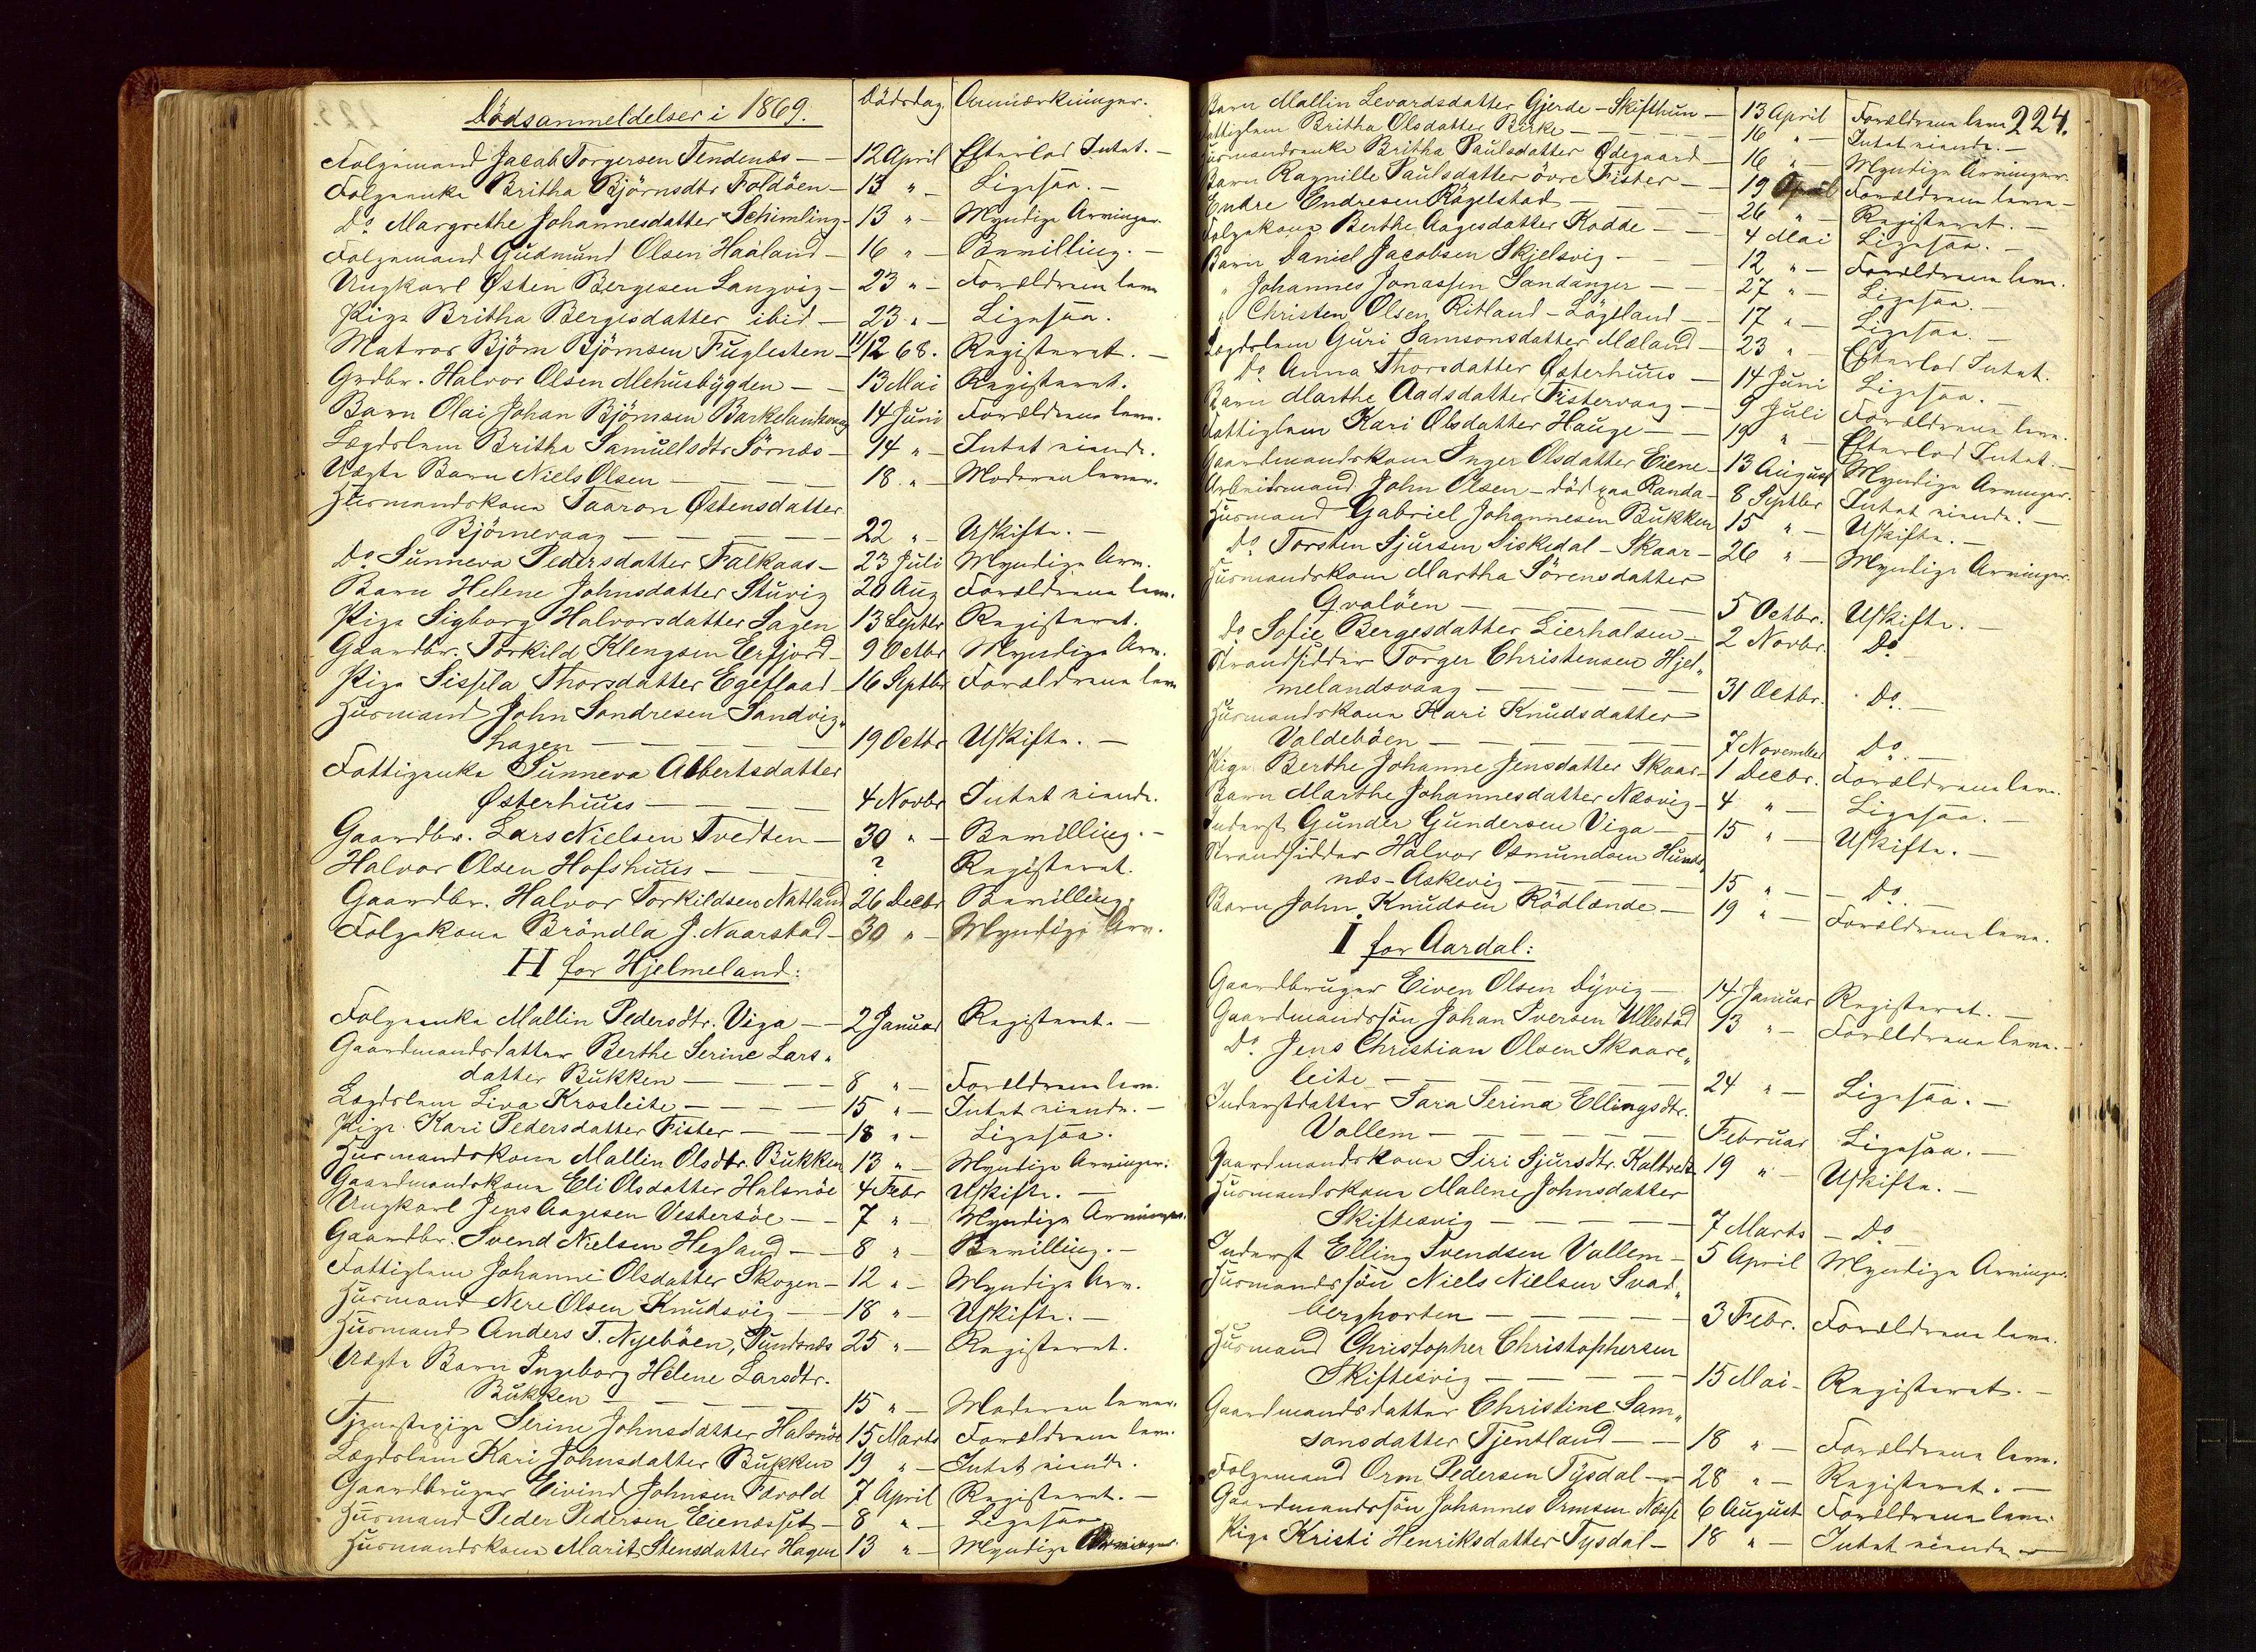 Dödsanmeldelser i 1869. Dödsdag Anmærkninger.
Folgemand Jacob Torgersen Tendenæs — 12 April Efterlod Intet. —
Folgeenke Britha Björnsdtr Foldöen — 13 " — Ligesaa. —
Do Margrethe Johannesdatter Schimling — 13 " — Myndige Arvinger.
Folgemand Gudmund Olsen Haaland — 16 " — Bevilling. —
Ungkarl Østen Bergesen Langvig — 23 " — Forældrene leve
Pige Britha Bergesdatter ibid — 23 " — Ligesaa.
Matros Björn Björnsen Fuglesten — 11/12 68. Registeret. —
Grdbr. Halvor Olsen Mehusbygden — 13 Mai Registeret.
Barn Olai Johan Björnsen 14 Juni Forældrene leve.
Lægdslem Britha Samuelsdtr Sörnæs — 14 " — Intet eiende.
Uægte Barn Niels Olsen — 18 " — Moderen lever.
Husmandskone Taaron Østensdatter
Björnevaag — 22 " — Uskifte. —
Do Sunneva Pedersdatter Falkaas — 23 Juli Myndige Arv.
Barn Helene Johnsdatter Stuvig 20 Aug Forældrene leve.
Pige Sigborg Halvorsdatter Sagen 13 Septbr Registeret.
Gaardbr. Torkild Klengsen Erfjord — 9 Octbr Myndige Arv.
Pige Sissela Thorsdatter Egeflaad — 16 Septbr Forældrene leve
Husmand John Sondresen Sandvig„
hagen — 19 Octbr Uskifte. —
Fattigenke Sunneva Albertsdatter
Østerhuus — 4 Novbr Intet eiende.
Gaardbr. Lars Nielsen Tvedten — 30 " — Bevilling. —
Halvor Olsen Hofshuus — ? Registeret.
Gaardbr. Halvor Torkildsen Natland 26 Decbr Bevilling.
Folgekone Bröndla J. Naarstad — 30 " — Myndige Arv.
H for Hjelmeland:
Folgeenke Mallin Pedersdtr. Viga — 2 Januar Registeret. —
Gaardmandsdatter Berthe Serine Lars„
datter Bukken — 8 " — Forældrene leve.
Lægdslem Liva Krosleite — 15 " — Intet eiende. —
Pige Kari Pedersdatter Fister — 18 " — Ligesaa.
Husmandskone Mallin Olsdtr. Bukken 13 " — Myndige Arvinger.
Gaardmandskone Eli Olsdatter Halsnöe 4 Febr Uskifte. —
Ungkarl Jens Aagesen Vestersöe — 7 " — Myndige Arvinger.
Gaardbr. Svend Nielsen Hegland — 8 " — Bevilling. —
Fattiglem Johanne Olsdatter Skogen — 12 " — Myndige Arv.
Husmand Nere Olsen Knudsvig — 18 " — Uskifte. —
Husmand Anders T. Nyeböen, 25 " — Registeret.
Uægte Barn Ingeborg Helene Larsdtr.
Bukken — 15 " — Moderen lever.
Tjenestepige Serine Johnsdatter Halsnöe 15 Marts Forældrene leve.
Lægdslem Kari Johnsdatter Bukken 19 " — Intet eiende.
Gaardbruger Eivind Johnsen Færold 7 April Registeret. —
Husmand Peder Pedersen Eienæsset — 8 " — Ligesaa
Husmandskone Marit Stensdatter Hagen 13 " — Myndige Arvinger.
224.
Barn Mallin Levardsdatter Gjerde — Skifthun — 13 April Forældrene leve
Fattiglem Britha Olsdatter Birke — 16 " — Intet eiende. —
Husmandsenke Britha Paulsdatter Ødegaard — 16 " — Myndige Arvinger.
Barn Ragnille Paulsdatter övre Fister — 19 April Forældrene leve —
Endre Endresen Rögelstad — 26 " — Registeret. —
Folgekone Berthe Aagesdatter Kodde — 4 Mai Ligesaa. —
Barn Daniel Jacobsen Skjelsvig — 12 " — Forældrene leve.
" Johannes Jonassen Sandanger — 27 " — Ligesaa. —
" Christen Olsen Ritland — Lögeland — 17 " — Ligesaa. —
Lægdslem Guri Samsonsdatter Mæland — 23 " — Efterlod Intet.
Do Anna Thorsdatter Østerhuus — 14 Juni Ligesaa. —
Barn Marthe Aadsdatter Fistervaag — 9 Juli Forældrene leve.
Fattiglem Kari Olsdatter Hauge — 19 " — Efterlod Intet. —
Gaardmandskone Inger Olsdatter Eiene — 13 August Myndige Arvinger.
Arbeidsmand John Olsen — död paa Randa — 8 Septbr Intet eiende. —
Husmand Gabriel Johannesen Bukken 15 " — Uskifte. —
Do Torsten Sjursen Siskedal — Skaar — 26 " — Myndige Arvinger.
Husmandskone Martha Sörensdatter
Qvalöen — 5 Octbr. Uskifte. —
Do Sofie Bergesdatter Lierhalsen — 2 Novbr. Do
Strandsidder Torger Christensen Hjel„
melandsvaag — 31 Octbr. Do. —
Husmandskone Kari Knudsdatter
Valdeböen — 7 November Do. —
Pige Berthe Johanne Jensdatter Skaar — 1 Decbr. Forældrene leve.
Barn Marthe Johannesdatter Næsvig — 4 " — Ligesaa. —
Inderst Gunder Gundersen Viga — 15 " — Uskifte. —
Strandsidder Halvor Osmundsen Hunds„
næs — Askevig — 15 " — Do. —
Barn John Knudsen Rödlænde — 19 " — Forældrene leve.
I for Aardal:
Gaardbruger Eiven Olsen Dyvig — 14 Januar Registeret. —
Gaardmandssön Johan Iversen Ullestad 13 " — Forældrene leve. —
Do. Jens Christian Olsen Skaare„
leite — 24 " — Ligesaa. —
Inderstdatter Sara Serina Ellingsdtr.
Vallem — Februar Ligesaa. —
Gaardmandskone Siri Sjursdtr. Kaltvedt 19 " — Uskifte. —
Husmandskone Malene Johnsdatter
Skiftesvig — 7 Marts — Do —
Inderst Elling Svendsen Vallem — 5 April Myndige Arvinger.
Husmandssön Niels Nielsen Svad„
berghorten — 3 Febr. Forældrene leve.
Husmand Christopher Christophersen
Skiftesvig — 15 Mai — Registeret. —
Gaardmandsdatter Christine Sam„
sonsdatter Tjentland — 18 " — Forældrene leve.
Folgemand Orm Pedersen Tysdal — 28 " — Registeret. —
Gaardmandssön Johannes Ormsen Næsse 6 August Forældrene leve.
Pige Kristi Henriksdatter Tysdal — 18 " — Intet eiende —